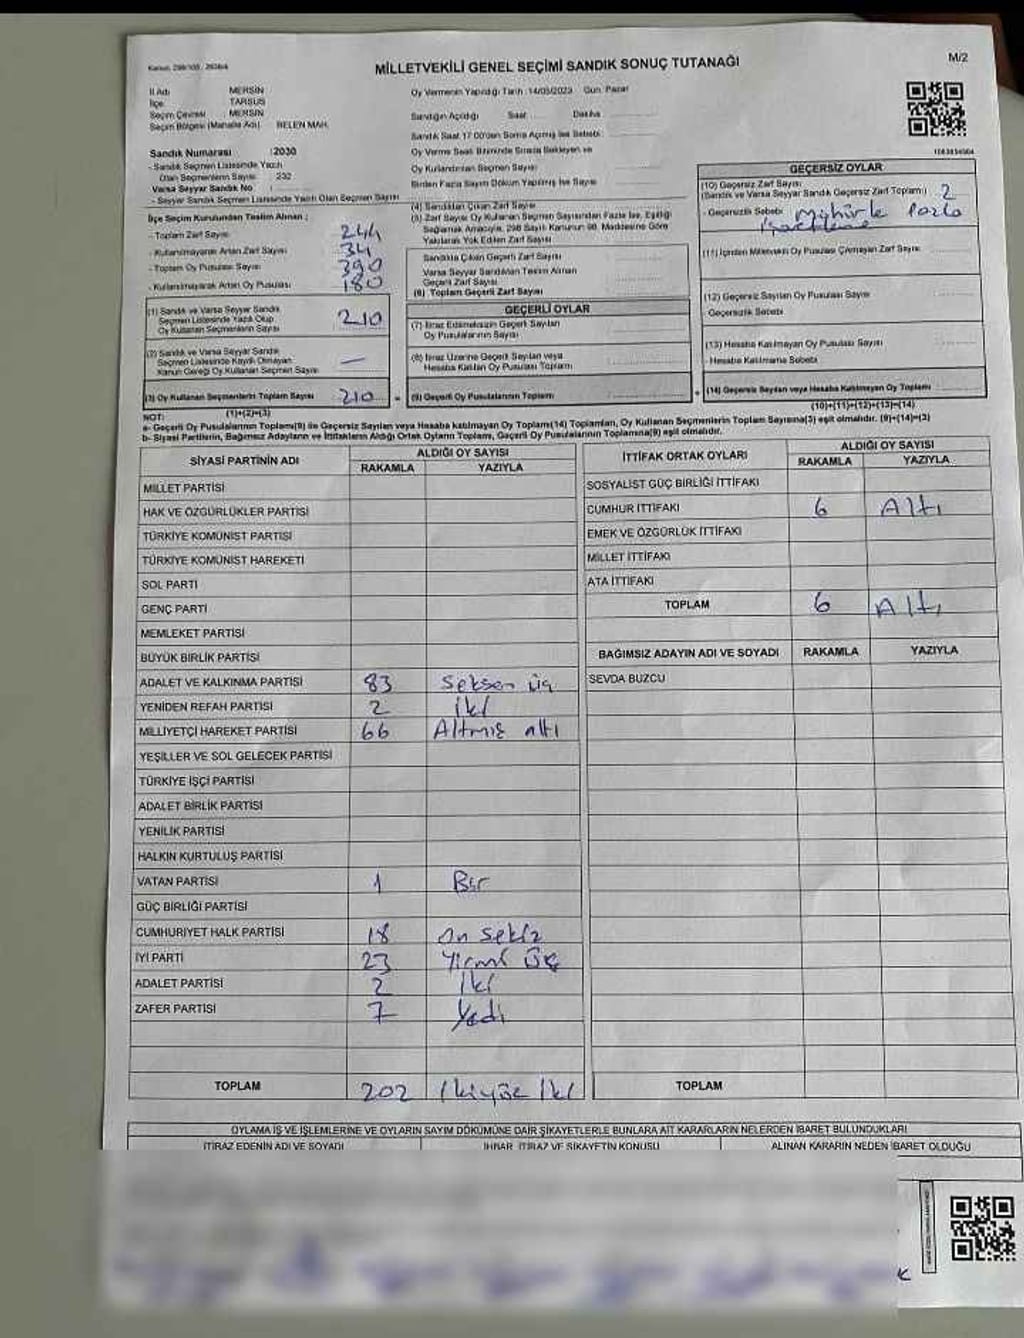 Kanun: 298/105, 2839/4
MİLLETVEKİLİ GENEL SEÇİMİ SANDIK SONUÇ TUTANAĞI
M/2
İl Adı MERSİN
İlçe TARSUS
Seçim Çevresi MERSİN
Seçim Bölgesi (Mahalle Adı) BELEN MAH.
Sandık Numarası : 2030
- Sandık Seçmen Listesinde Yazılı
Olan Seçmenlerin Sayısı : 232
Varsa Seyyar Sandık No :
- Seyyar Sandık Seçmen Listesinde Yazılı Olan Seçmen Sayısı
Oy Vermenin Yapıldığı Tarih :14/05/2023 Gün: Pazar
Sandığın Açıldığı Saat Dakika
Sandık Saat 17:00'den Sonra Açılmış İse Sebebi :
Oy Verme Saati Bitiminde Sırada Bekleyen ve
Oy Kullandırılan Seçmen Sayısı
Birden Fazla Sayım Döküm Yapılmış İse Sayısı
(4) Sandıktan Çıkan Zarf Sayısı
(5) Zarf Sayısı Oy Kullanan Seçmen Sayısından Fazla İse, Eşitliği
Sağlamak Amacıyla, 298 Sayılı Kanunun 98. Maddesine Göre
Yakılarak Yok Edilen Zarf Sayısı
İlçe Seçim Kurulundan Teslim Alınan :
- Toplam Zarf Sayısı 244
- Kullanılmayarak Artan Zarf Sayısı 34
- Toplam Oy Pusulası Sayısı 390
- Kullanılmayarak Artan Oy Pusulası 180
(1) Sandık ve Varsa Seyyar Sandık
Seçmen Listesinde Yazılı Olup
Oy Kullanan Seçmenlerin Sayısı 210
(2) Sandık ve Varsa Seyyar Sandık
Seçmen Listesinde Kayıtlı Olmayan
Kanun Gereği Oy Kullanan Seçmen Sayısı —
(3) Oy Kullanan Seçmenlerin Toplam Sayısı 210
(1)+(2)=(3)
Sandıkta Çıkan Geçerli Zarf Sayısı
Varsa Seyyar Sandıktan Teslim Alınan
Geçerli Zarf Sayısı
(6) Toplam Geçerli Zarf Sayısı
GEÇERLİ OYLAR
(7) İtiraz Edilmeksizin Geçerli Sayılan
Oy Pusulalarının Sayısı
(8) İtiraz Üzerine Geçerli Sayılan veya
Hesaba Katılan Oy Pusulası Toplamı
(9) Geçerli Oy Pusulalarının Toplamı
1083854504
GEÇERSİZ OYLAR
(10) Geçersiz Zarf Sayısı
(Sandık ve Varsa Seyyar Sandık Geçersiz Zarf Toplamı) 2
- Geçersizlik Sebebi Mühürle fazla
işaretleme
(11) İçinden Milletvekili Oy Pusulası Çıkmayan Zarf Sayısı
(12) Geçersiz Sayılan Oy Pusulası Sayısı
Geçersizlik Sebebi
(13) Hesaba Katılmayan Oy Pusulası Sayısı
- Hesaba Katılmama Sebebi
(14) Geçersiz Sayılan veya Hesaba Katılmayan Oy Toplamı
(10)+(11)+(12)+(13)=(14)
NOT:
a- Geçerli Oy Pusulaları Toplamı(9) ile Geçersiz Sayılan veya Hesaba katılmayan Oy Toplamı(14) Toplamları, Oy Kullanan Seçmenlerin Toplam Sayısına(3) eşit olmalıdır. (9)+(14)=(3)
b- Siyasi Partilerin, Bağımsız Adayların ve İttifakların Aldığı Ortak Oyların Toplamı, Geçerli Oy Pusulalarının Toplamına(9) eşit olmalıdır.
SİYASİ PARTİNİN ADI ALDIĞI OY SAYISI
RAKAMLA YAZIYLA
MİLLET PARTİSİ
HAK VE ÖZGÜRLÜKLER PARTİSİ
TÜRKİYE KOMÜNİST PARTİSİ
TÜRKİYE KOMÜNİST HAREKETİ
SOL PARTİ
GENÇ PARTİ
MEMLEKET PARTİSİ
BÜYÜK BİRLİK PARTİSİ
ADALET VE KALKINMA PARTİSİ 83 Seksen üç
YENİDEN REFAH PARTİSİ 2 İki
MİLLİYETÇİ HAREKET PARTİSİ 66 Altmış altı
YEŞİLLER VE SOL GELECEK PARTİSİ
TÜRKİYE İŞÇİ PARTİSİ
ADALET BİRLİK PARTİSİ
YENİLİK PARTİSİ
HALKIN KURTULUŞ PARTİSİ
VATAN PARTİSİ 1 Bir
GÜÇ BİRLİĞİ PARTİSİ
CUMHURİYET HALK PARTİSİ 18 On sekiz
İYİ PARTİ 23 Yirmi üç
ADALET PARTİSİ 2 İki
ZAFER PARTİSİ 7 Yedi
TOPLAM 202 İkiyüz iki
İTTİFAK ORTAK OYLARI ALDIĞI OY SAYISI
RAKAMLA YAZIYLA
SOSYALİST GÜÇ BİRLİĞİ İTTİFAKI
CUMHUR İTTİFAKI 6 Altı
EMEK VE ÖZGÜRLÜK İTTİFAKI
MİLLET İTTİFAKI
ATA İTTİFAKI
TOPLAM 6 Altı
BAĞIMSIZ ADAYIN ADI VE SOYADI RAKAMLA YAZIYLA
SEVDA BUZCU
TOPLAM
OYLAMA İŞ VE İŞLEMLERİNE VE OYLARIN SAYIM DÖKÜMÜNE DAİR ŞİKAYETLERLE BUNLARA AİT KARARLARIN NELERDEN İBARET BULUNDUKLARI
İTİRAZ EDENİN ADI VE SOYADI İHBAR, İTİRAZ VE ŞİKAYETİN KONUSU ALINAN KARARIN NEDEN İBARET OLDUĞU